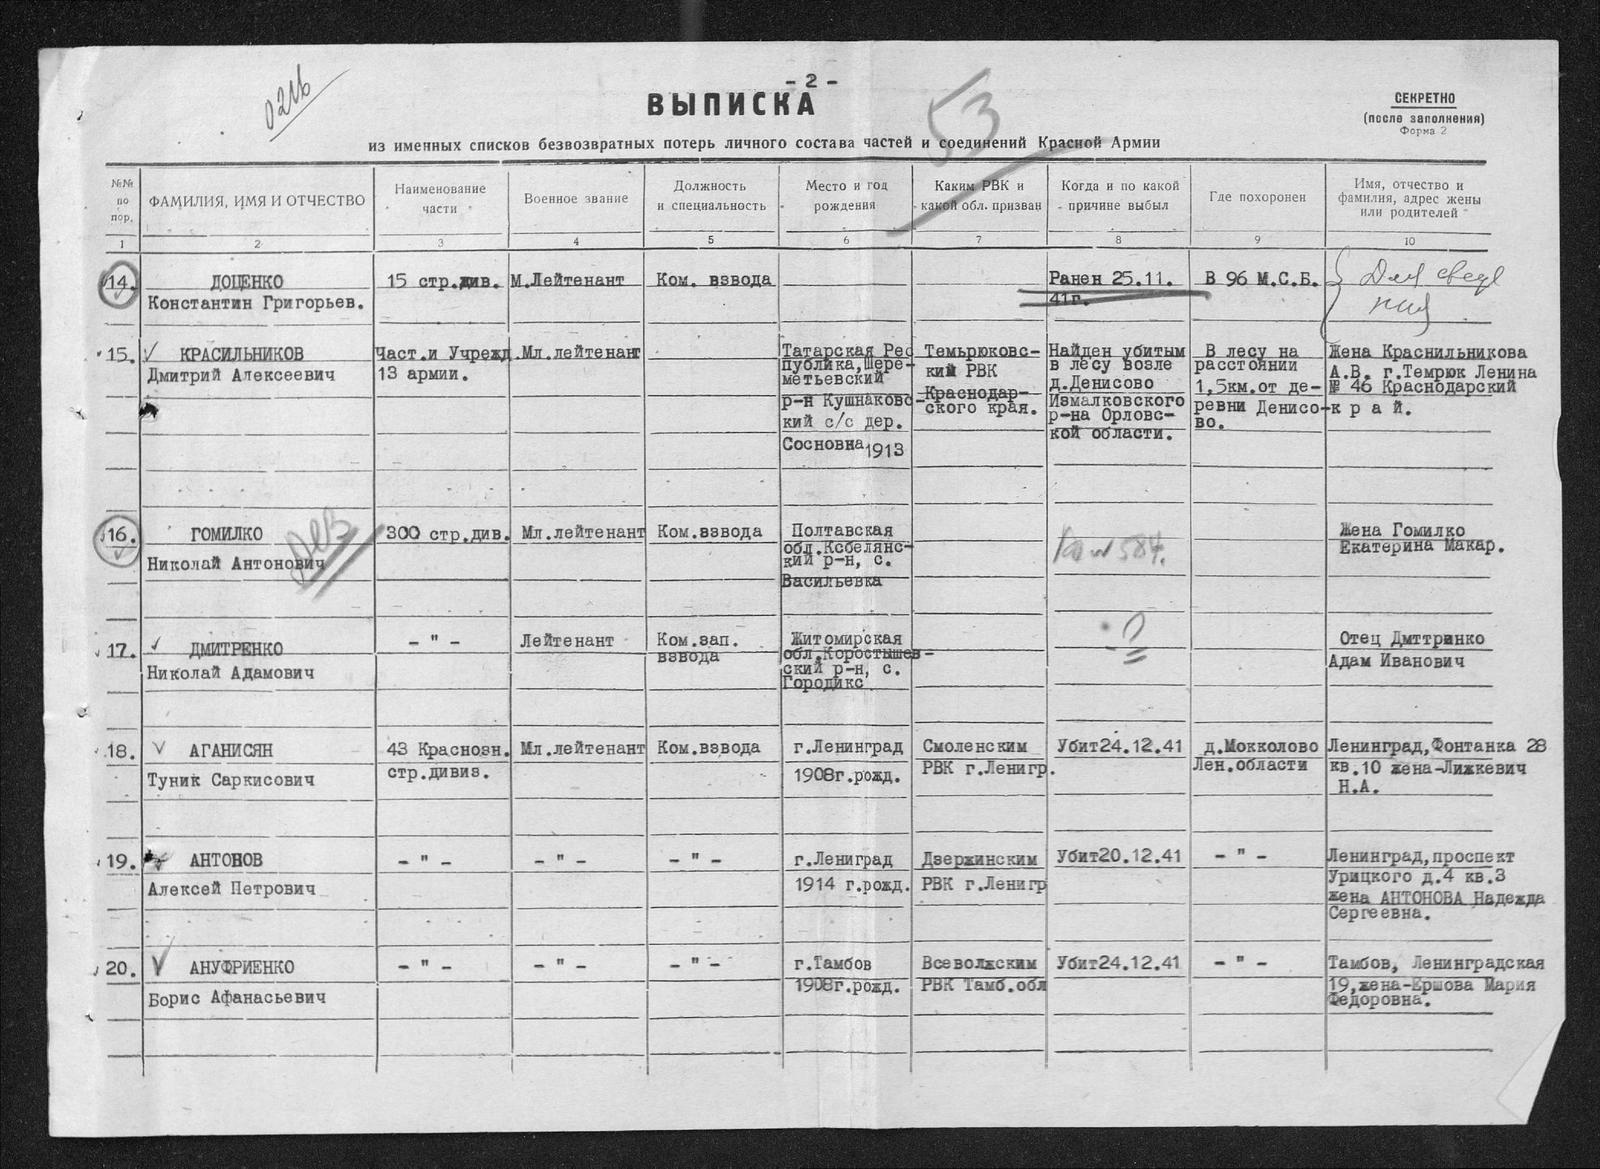 0216
- 2 -
ВЫПИСКА
53
СЕКРЕТНО
(после заполнения)
Форма 2
из именных списков безвозвратных потерь личного состава частей и соединений Красной Армии
№№ по пор.
ФАМИЛИЯ, ИМЯ И ОТЧЕСТВО
Наименование части
Военное звание
Должность и специальность
Место и год рождения
Каким РВК и какой обл. призван
Когда и по какой причине выбыл
Где похоронен
Имя, отчество и фамилия, адрес жены или родителей
1 2 3 4 5 6 7 8 9 10
14.
ДОЦЕНКО
Константин Григорьев.
15 стр.див.
М.Лейтенант
Ком. взвода
Ранен 25.11.
41г.
В 96 М.С.Б.
Для сведе
ния
15.
КРАСИЛЬНИКОВ
Дмитрий Алексеевич
Част.и Учрежд.
13 армии.
Мл.лейтенант
Татарская Рес
публика,Шере-
метьевский
р-н Кушнаковс-
кий с/с дер.
Сосновна 1913
Темьрюковс-
кий РВК
Краснодар-
ского края.
Найден убитым
в лесу возле
д.Денисово
Измалковского
р-на Орловс-
кой области.
В лесу на
расстоянии
1,5км.от де-
ревни Денисо-
во.
Жена Краснильникова
А.В. г.Темрюк Ленина
№ 46 Краснодарский
край.
16.
ГОМИЛКО
Николай Антонович
300 стр.див.
Мл.лейтенант
Ком.взвода
Полтавская
обл.Ксбелянс-
кий р-н, с.
Васильевка
584.
Жена Гомилко
Екатерина Макар.
17.
ДМИТРЕНКО
Николай Адамович
- " -
Лейтенант
Ком.зап.
взвода
Житомирская
обл.Коростышев-
ский р-н, с.
Городикс
?
Отец Дмттринко
Адам Иванович
18.
АГАНИСЯН
Туник Саркисович
43 Краснозн.
стр.дивиз.
Мл.лейтенант
Ком.взвода
г.Ленинград
1908г.рожд.
Смоленским
РВК г.Ленигр.
Убит24.12.41
д.Мокколово
Лен.области
Ленинград,Фонтанка 28
кв.10 жена-Лижкевич
Н.А.
19.
АНТОНОВ
Алексей Петрович
- " -
- " -
- " -
г.Лениград
1914 г.рожд.
Дзержинским
РВК г.Ленигр
Убит20.12.41
- " -
Ленинград,проспект
Урицкого д.4 кв.3
жена АНТОНОВА Надежда
Сергеевна.
20.
АНУФРИЕНКО
Борис Афанасьевич
- " -
- " -
- " -
г.Тамбов
1908г.рожд.
Всеволжским
РВК Тамб.обл
Убит24.12.41
- " -
Тамбов, Ленинградская
19,жена-Ершова Мария
Федоровна.